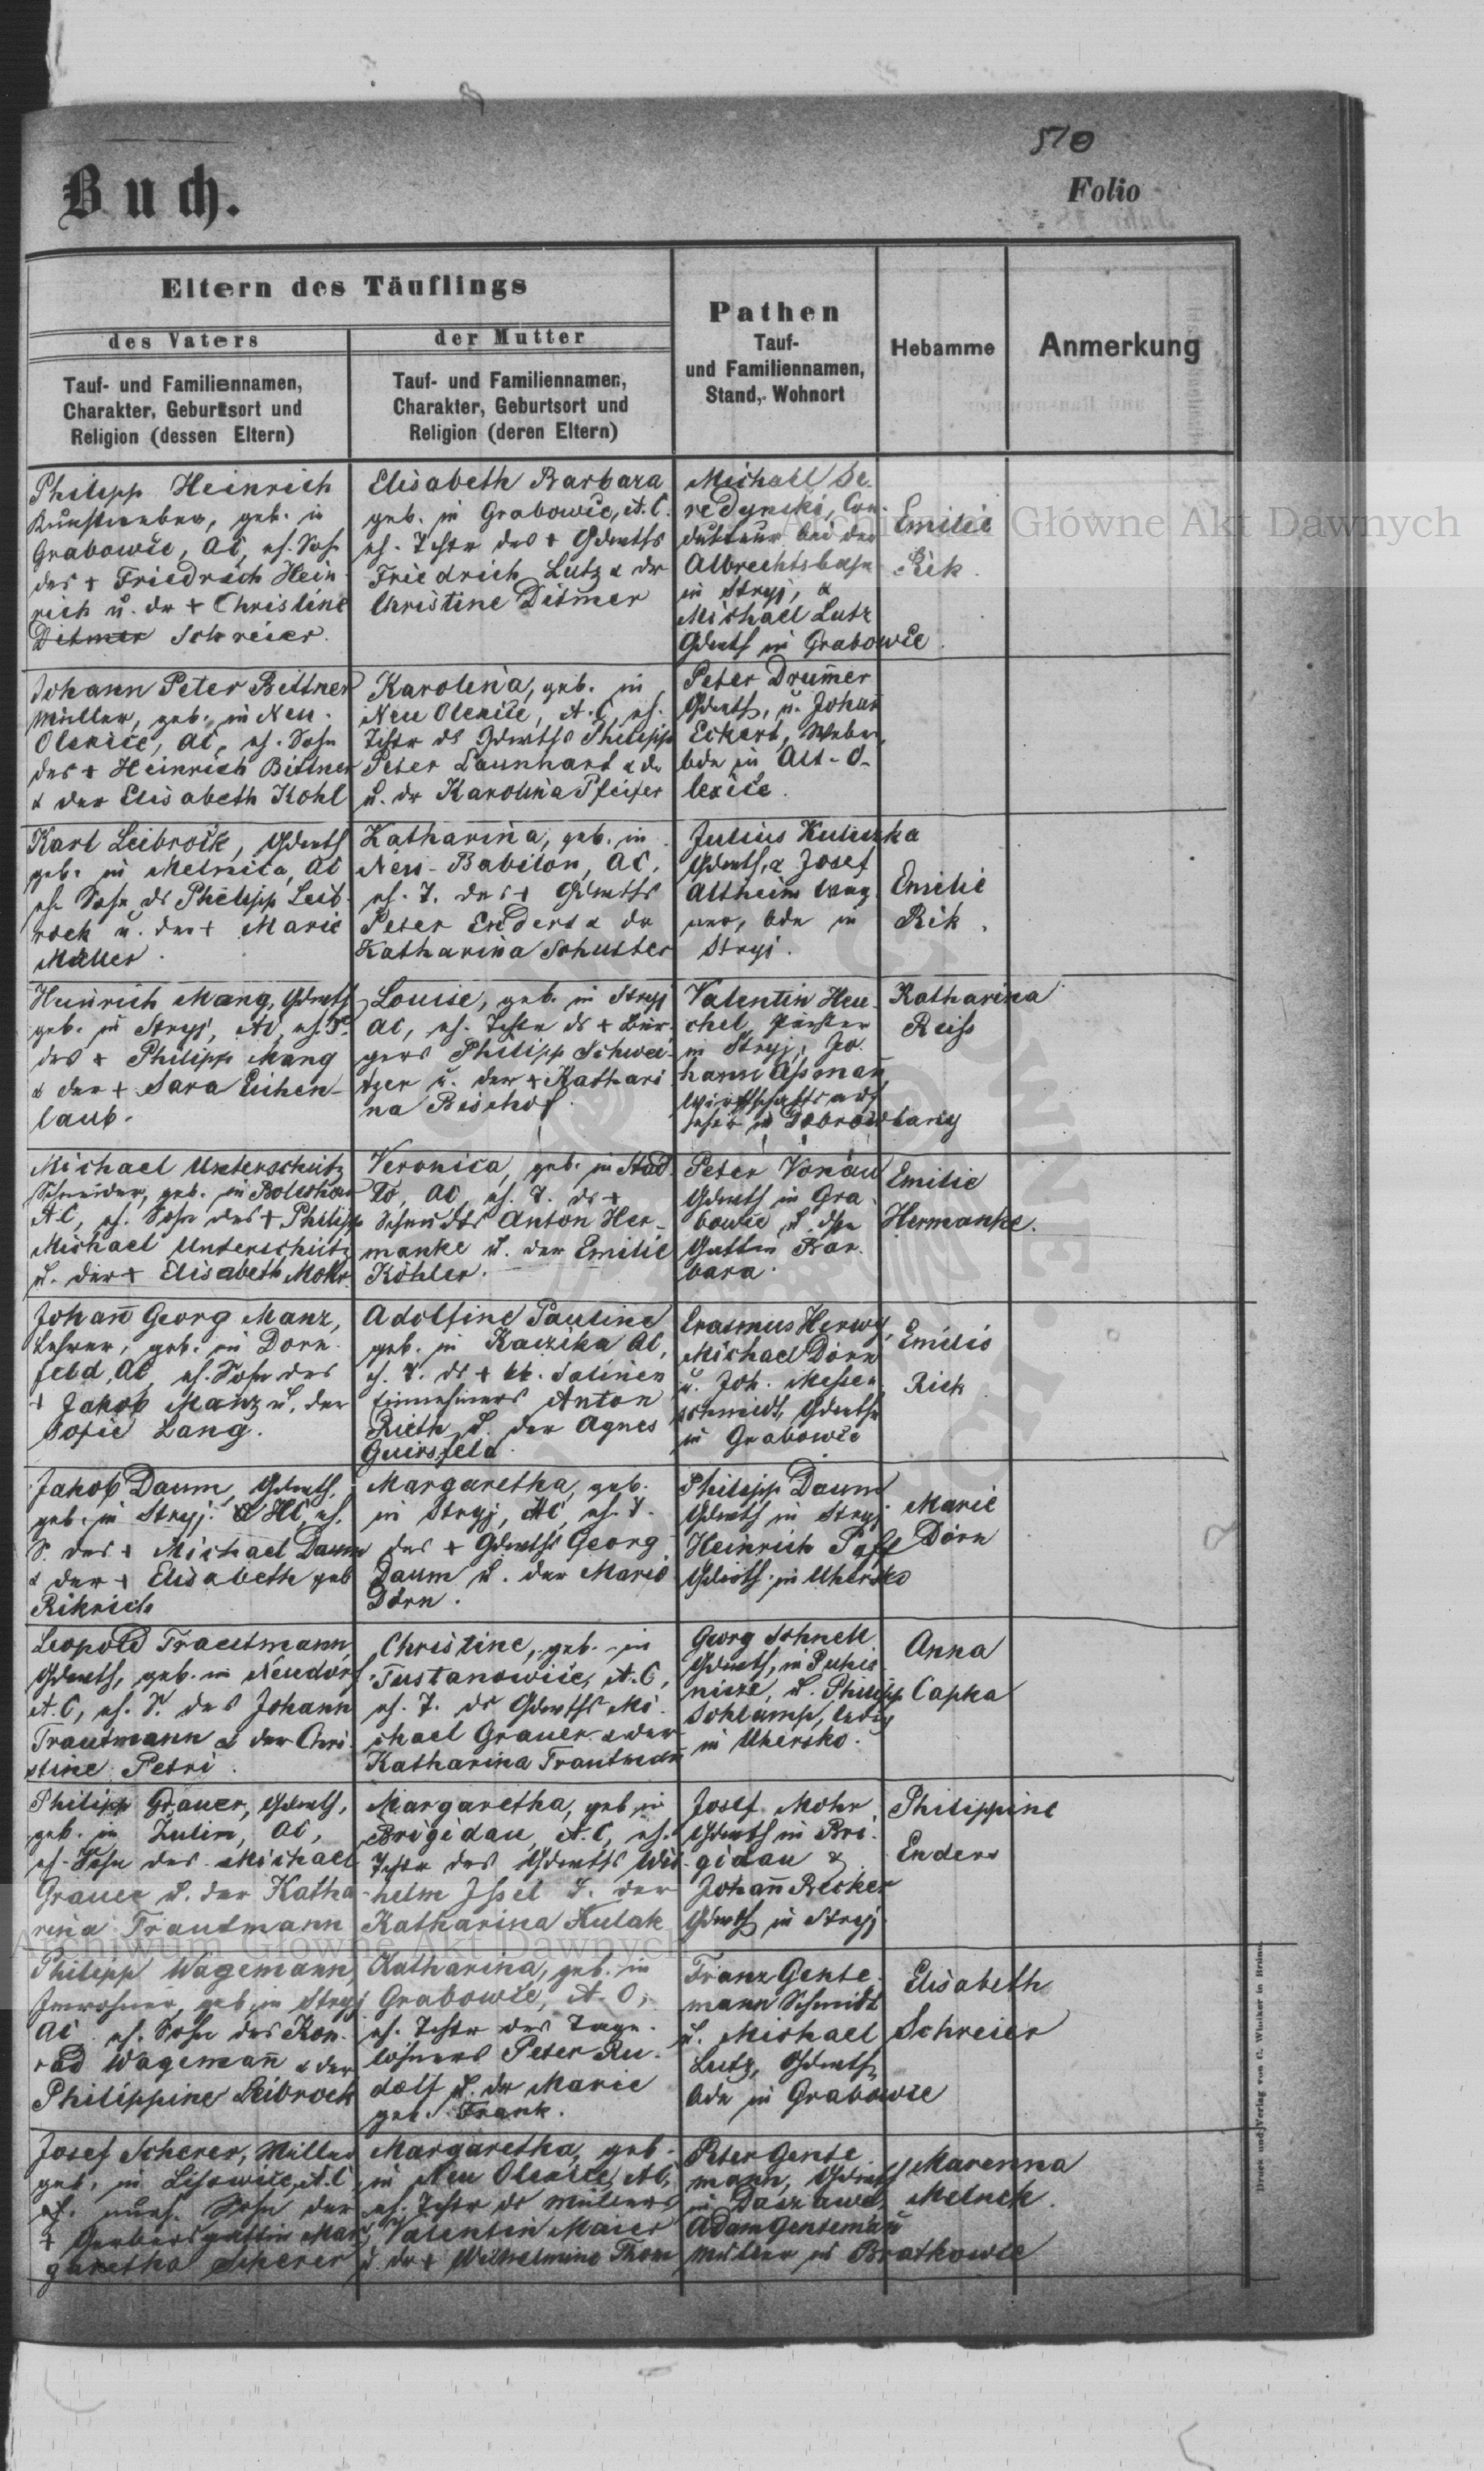 510
Buch.
Folio
Eltern des Täuflings
des Vaters
der Mutter
Pathen
Tauf-
und Familiennamen,
Stand, Wohnort
Hebamme
Anmerkung
Tauf- und Familiennamen,
Charakter, Geburtsort und
Religion (dessen Eltern)
Tauf- und Familiennamen,
Charakter, Geburtsort und
Religion (deren Eltern)
Philipp Heinrich
geb. in
Grabowce, AC, eh. Sohn
des + Friedrich Hein
rich u. der + Christine
Ditmer Schreier.
Elisabeth Barbara
geb. in Grabowce, A.C.
eh. Tochter des + Gdwrths
Friedrich Lutz & der
Christine Ditmer
Michael Se
redynski, Con-
dukteur bei der
Albrechtsbahn
in Stryj, &
Michael Lutz
Gdwrth in Grabowce.
Emilie
Rik.
Johann Peter Bittner
Müller, geb. in Neu
Olexice, AC, eh. Sohn
des + Heinrich Bittner
& der Elisabeth Kohl
Karolina, geb. in
Neu Olexice, A.C, eh.
Tochter ds Gdwrths Philipp
Peter Launhart & der
u. der Karolina Pfeifer
Peter Drumer
Gdwrth, u. Johan
Eckert, Weber,
bde in Alt-O-
lexice.
Karl Leibrock, Gdwrth
geb. in Melnica, AC
eh. Sohn ds Philipp Leib
rock u. der + Marie
Müller.
Katharina, geb. in
Neu-Babilon, AC,
eh. T. des + Gdwrths
Peter Enders & der
Katharina Schuster
Julius Kuliczka
Gdwrth, & Josef
Altheim Wag
ner, bde in
Stryj.
Emilie
Rik.
Heinrich Mang, Gdwrth
geb. in Stryj, AC, eh. S.
des + Philipp Mang
& der + Sara Eichen-
laub.
Louise, geb. in Stryj
AC, eh. Tochter ds + Bür-
gers Philipp Schwei-
tzer u. der + Kathari
na Bischof.
Valentin Heu-
chel,
in Stryj, Jo-
hann Aßmañ
Wirthschaftsauf
seher in Dobrowlany
Katharina
Reiß
Michael Unterschütz
Schneider, geb. in Bolechow
AC, eh. Sohn des + Philipp
Michael Unterschütz
u. der + Elisabeth Mohr
Veronica, geb. in Stad
lo, AC, eh. T. ds +
Anton Her-
manke u. der Emilie
Köhler.
Peter Vonau
Gdwrth in Gra
bowce u. dssn
Gattin Bar
bara.
Emilie
Hermanke.
Johañ Georg Manz,
Lehrer, geb. in Dorn
feld, AC, eh. Sohn des
+ Jakob Manz u. der
Sofie Lang.
Adolfine Pauline
geb. in Kaczika AC,
eh. T. ds + kk. Salinen
Einnehmers Anton
Rieth u. der Agnes
Erasmus Herwy,
Michael Dörn
u. Joh. Messer
schmidt, Gdwrthe
in Grabowce
Emilie
Rick
Jakob Daum, Gdwrth,
geb. in Stryj. HC, eh.
S. des + Michael Daum
& der + Elisabeth geb
Rikrich
Margaretha, geb.
in Stryj, AC, eh. T.
des + Gdwrths Georg
Daum u. der Marie
Dörn.
Philipp Daum
Gdwrth in Stryj
Heinrich
Gdwrth in Uhersko
Marie
Dörn
Leopold Trautmann,
Gdwrth, geb. in Neudorf
A.C, eh. S. des Johann
Trautmann & der Chri
stine Petri.
Christine, geb. in
Tustanowice, A.C,
eh. T. ds Gdwrths Mi
chael Grauer & der
Katharina Trautmañ
Georg Schnell
Gdwrth, in Pukie
nicze, u. Philipp
Schlamp, ledig
in Uhersko.
Anna
Capka
Philipp Grauer, Gdwrth,
geb. in Zulin, AC,
eh. Sohn des Michael
Grauer u. der Katha
rina Trautmann
Margaretha, geb in
Brigidau, A.C, eh.
Tochter des Gdwrths Wil
helm Issel u. der
Katharina Kulak
Josef Mohr
Gdwrth in Bri
gidau &
Johañ Becker
Gdwrth in Stryj
Philippine
Enders
Philipp Wagemann,
Inwohner, geb. in Stryj
AC eh. Sohn des Kon-
rad Wagemañ & der
Philippine Leibrock
Katharina, geb. in
Grabowce, A.C,
eh. Tochter des Tage-
löhners Peter Ru-
dolf u. der Marie
geb. Frank.
Franz Gente
mann Schmidt
u. Michael
Lutz, Gdwrth,
bde in Grabowce
Elisabeth
Schreier
Josef Scherer, Müller
geb. in Lisowice, A.C
uneh. Sohn der
+ Gerbersgattin Mar
garetha Scherer
Margaretha, geb.
in Neu Olexice, AC,
eh. Tochter ds Müllers
Valentin Maier
u. der + Wilhelmine Thom
Peter Gente
mann, Gdwrth
in Daszawa,
Adam Gentemañ
Müller in Bratkowce
Marenna
Melnek.
Druck und Verlag von C. Winiker in Brünn.
Archiwum Główne Akt Dawnych
Archiwum Główne Akt Dawnych